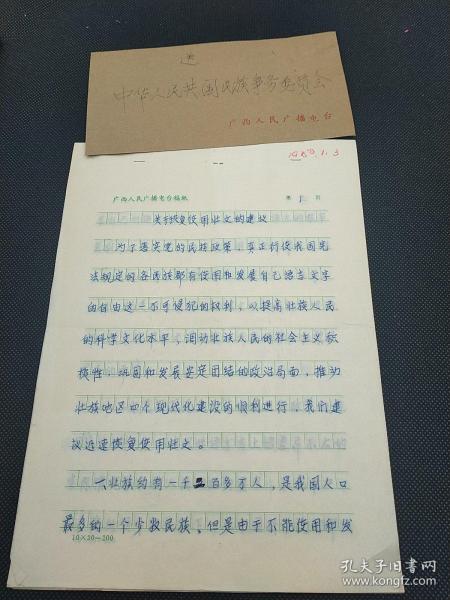 送
中华人民共国民族事务委员会
广西人民广播电台
1980.1.3
广西人民广播电台稿纸
第1页
关于恢复使用壮文的建议
为了落实党的民族政策,真正行使我国宪
法规定的各民族都有使用和发展自己语言文字
的自由这一不可侵犯的权利,以提高壮族人民
的科学文化水平,调动壮族人民的社会主义积
极性,巩固和发展安定团结的政治局面,推动
壮族地区四个现代化建设的顺利进行,我们建
议迅速恢复使用壮文。
一、壮族约有一千二百多万人,是我国人口
最多的一个少数民族。但是由于不能使用和发
10×20=200
孔夫子旧书网
www.kongfz.com